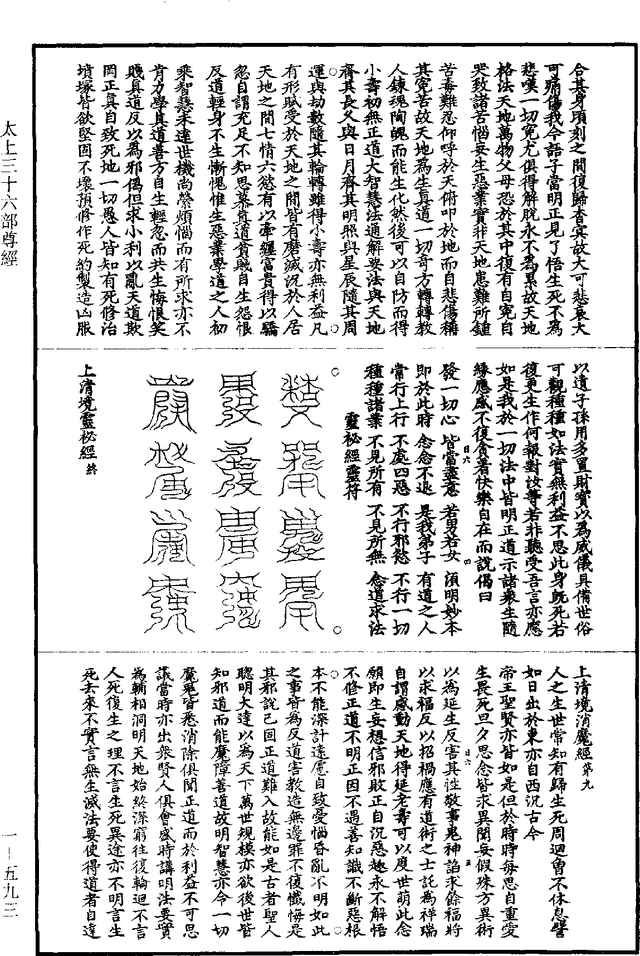 太上三十六部尊經
合其身頃刻之間復歸杳冥故大可悲哀大
可痛傷我今語子當明正見了悟生死不為
悲嘆一切冤尤俱得解脫永不為累故天地
格法天地萬物父母恐於其中復有自冤自
哭致諸苦惱妄生惡業實非天地患難所鍾
苦毒難忍仰呼於天俯叩於地而自悲傷稱
其冤苦故天地為生真道一切奇方轉轉教
人鍊魂陶魄而能生化然後可以自防而得
小壽初無正道大智慧法通解要法與天地
齊其長久與日月齊其明照與星辰隨其周
運與劫數隨其輪轉雖得小壽亦無利益凡
有形賦受於天地之間皆有磨滅況於人居
天地之間七情六慾有以牽纏富貴得以驕
忽自謂充足不知思慕真道貧賤自生怨恨
反道輕身不生慚愧惟生惡業學道之人初
乘智慧未達世機尚縈煩惱而有所求亦不
肯力學真道善方自生輕忽而共生悔恨笑
賤真道反以為邪偽但求小利以亂天道欺
罔正真自致死地一切愚人皆知有死修治
墳塚皆欲堅固不壞預修作死約製造凶服
以遺子孫用多置財寶以為威儀具備世俗
可觀種種如法實無利益不思此身既死若
復更生作何報對汝等若非聽受吾言亦應
如是我於一切法中皆明正道示諸眾生隨
緣應感不復貪著快樂自在而說偈曰
發一切心 皆當靈意 若男若女 須明妙本
即於此時 念念不退 是我弟子 有道之人
常行上行 不處四惡 不行邪慾 不行一切
種種諸業 不見所有 不見所無 念道求法
靈祕經靈符
上清境靈祕經終
上清境消魔經第九
人之生世常知有歸生死周迴曾不休息譬
如日出於東亦自西沉古今
帝王聖賢亦皆如是但於時時每思自重愛
生畏死旦夕思念皆求異聞妄假殊方異術
以為延生反害其性敬事鬼神諂求餘福將
以求福反以招禍應有道術之士託為祥瑞
自謂感動天地得延老壽可以度世萌此念
願即生妄想信邪敗正自沉惡趣永不解悟
不修正道不明正因不遇善知識不斷惡根
本不能深計遠慮自致憂惱昏亂不明如此
之事皆為反道害教造無邊罪不復懺悔是
其邪說已固正道難入故能如是古者聖人
聰明大達以為天下萬世規模亦欲後世皆
知邪道而能魔障善道故明智慧亦令一切
魔鬼皆悉消除俱聞正道而於利益不可思
議當時亦出眾賢人俱會盛時講明法要實
為輔相洞明天地始終深窮往復輪迴不言
人死復生之理不言生死異途亦不明言生
死去來不實言無生滅法要使得道者自達
一－五九三